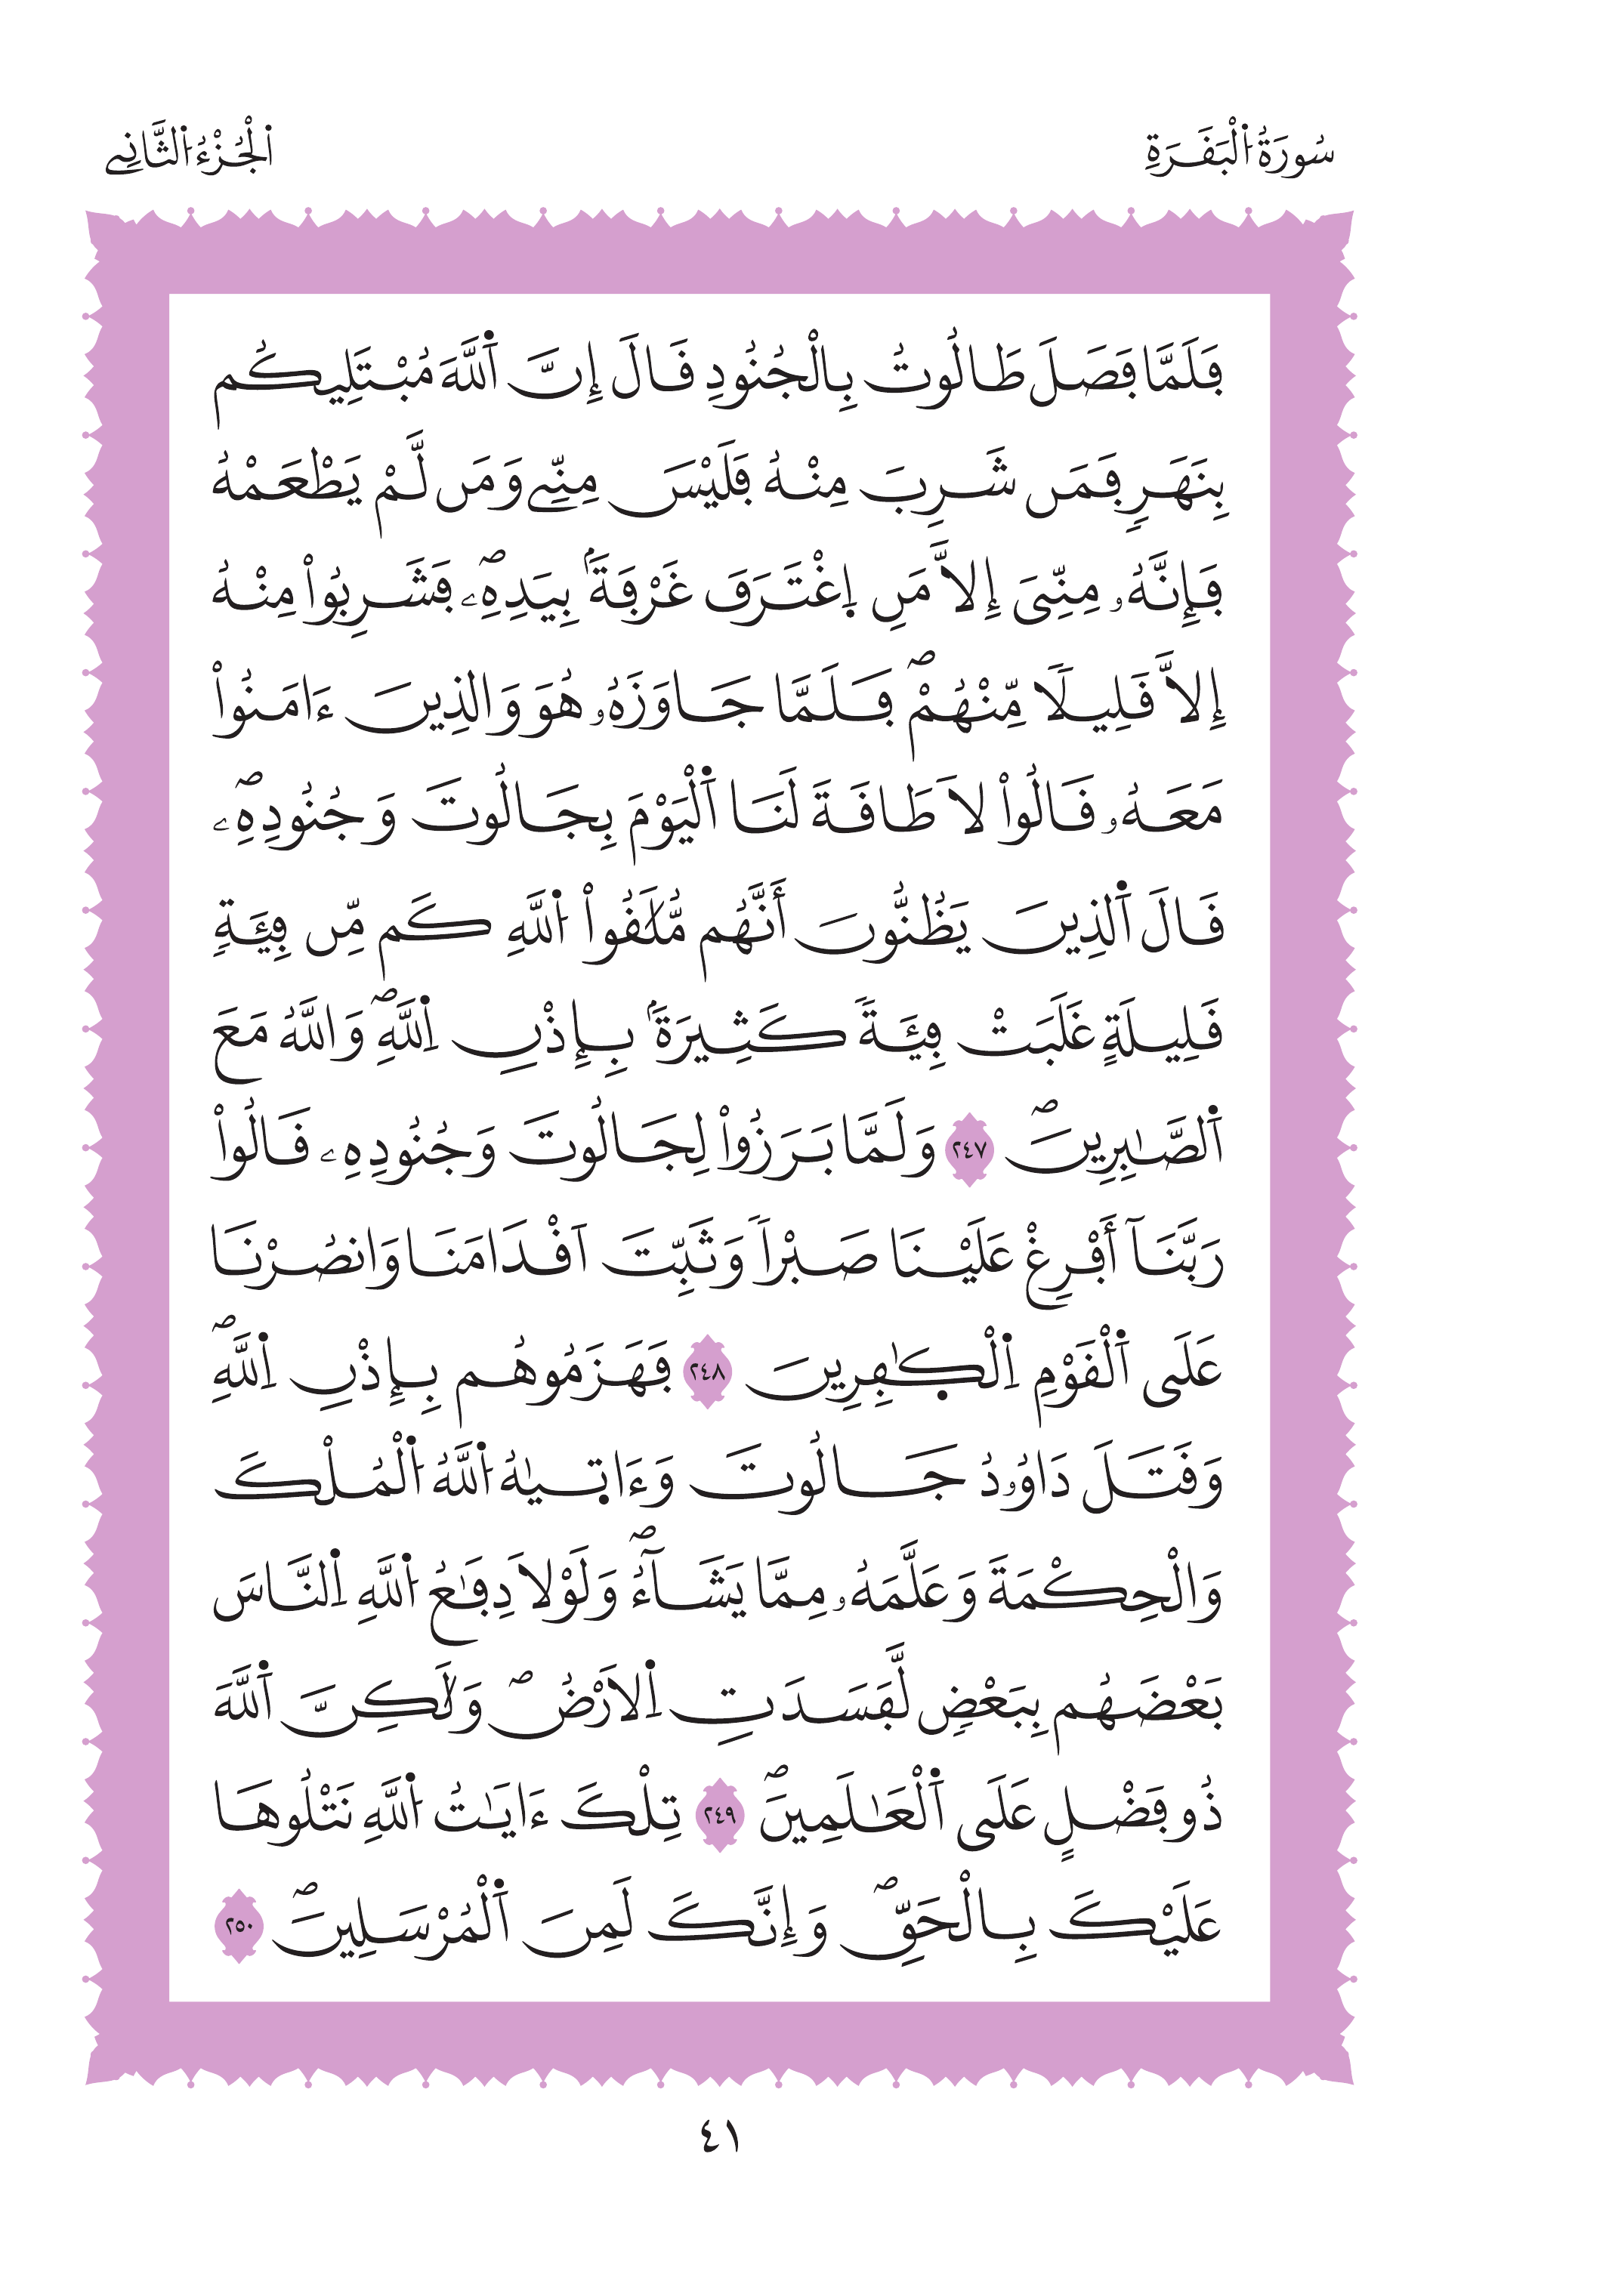 سُورَةُ اُ۬لْبَقَرَةِ
اَ۬لْجُزْءُ اُ۬لثَّانِے
فَلَمَّا فَصَلَ طَالُوتُ بِالْجُنُودِ قَالَ إِنَّ اَ۬للَّهَ مُبْتَلِيكُم
بِنَهَرٖ فَمَن شَرِبَ مِنْهُ فَلَيْسَ مِنِّے وَمَن لَّمْ يَطْعَمْهُ
فَإِنَّهُۥ مِنِّىَ إِلاَّ مَنِ اِ۪غْتَرَفَ غَرْفَةَۢ بِيَدِهِۦۖ فَشَرِبُواْ مِنْهُ
إِلاَّ قَلِيلٗا مِّنْهُمْۖ فَلَمَّا جَاوَزَهُۥ هُوَ وَالذِينَ ءَامَنُواْ
مَعَهُۥ قَالُواْ لاَ طَاقَةَ لَنَا اَ۬لْيَوْمَ بِجَالُوتَ وَجُنُودِهِۦۖ
قَالَ اَ۬لذِينَ يَظُنُّونَ أَنَّهُم مُّلَٰقُواْ اُ۬للَّهِ كَم مِّن فِئَةٖ
قَلِيلَةٍ غَلَبَتْ فِئَةٗ كَثِيرَةَۢ بِإِذْنِ اِ۬للَّهِۖ وَاللَّهُ مَعَ
اَ۬لصَّٰبِرِينَۖ ٢٤٧ وَلَمَّا بَرَزُواْ لِجَالُوتَ وَجُنُودِهِۦ قَالُواْ
رَبَّنَآ أَفْرِغْ عَلَيْنَا صَبْراٗ وَثَبِّتَ اَقْدَامَنَا وَانصُرْنَا
عَلَى اَ۬لْقَوْمِ اِ۬لْكٰ۪فِرِينَ ٢٤٨ فَهَزَمُوهُم بِإِذْنِ اِ۬للَّهِۖ
وَقَتَلَ دَاوُۥدُ جَالُوتَ وَءَات۪يٰهُ اُ۬للَّهُ اُ۬لْمُلْكَ
وَالْحِكْمَةَ وَعَلَّمَهُۥ مِمَّا يَشَآءُۖ وَلَوْلاَ دِفَٰعُ اُ۬للَّهِ اِ۬لنَّاسَ
بَعْضَهُم بِبَعْضٖ لَّفَسَدَتِ اِ۬لَارْضُۖ وَلَٰكِنَّ اَ۬للَّهَ
ذُو فَضْلٍ عَلَى اَ۬لْعَٰلَمِينَۖ ٢٤٩ تِلْكَ ءَايَٰتُ اُ۬للَّهِ نَتْلُوهَا
عَلَيْكَ بِالْحَقِّۖ وَإِنَّكَ لَمِنَ اَ۬لْمُرْسَلِينَۖ ٢٥٠
٤١